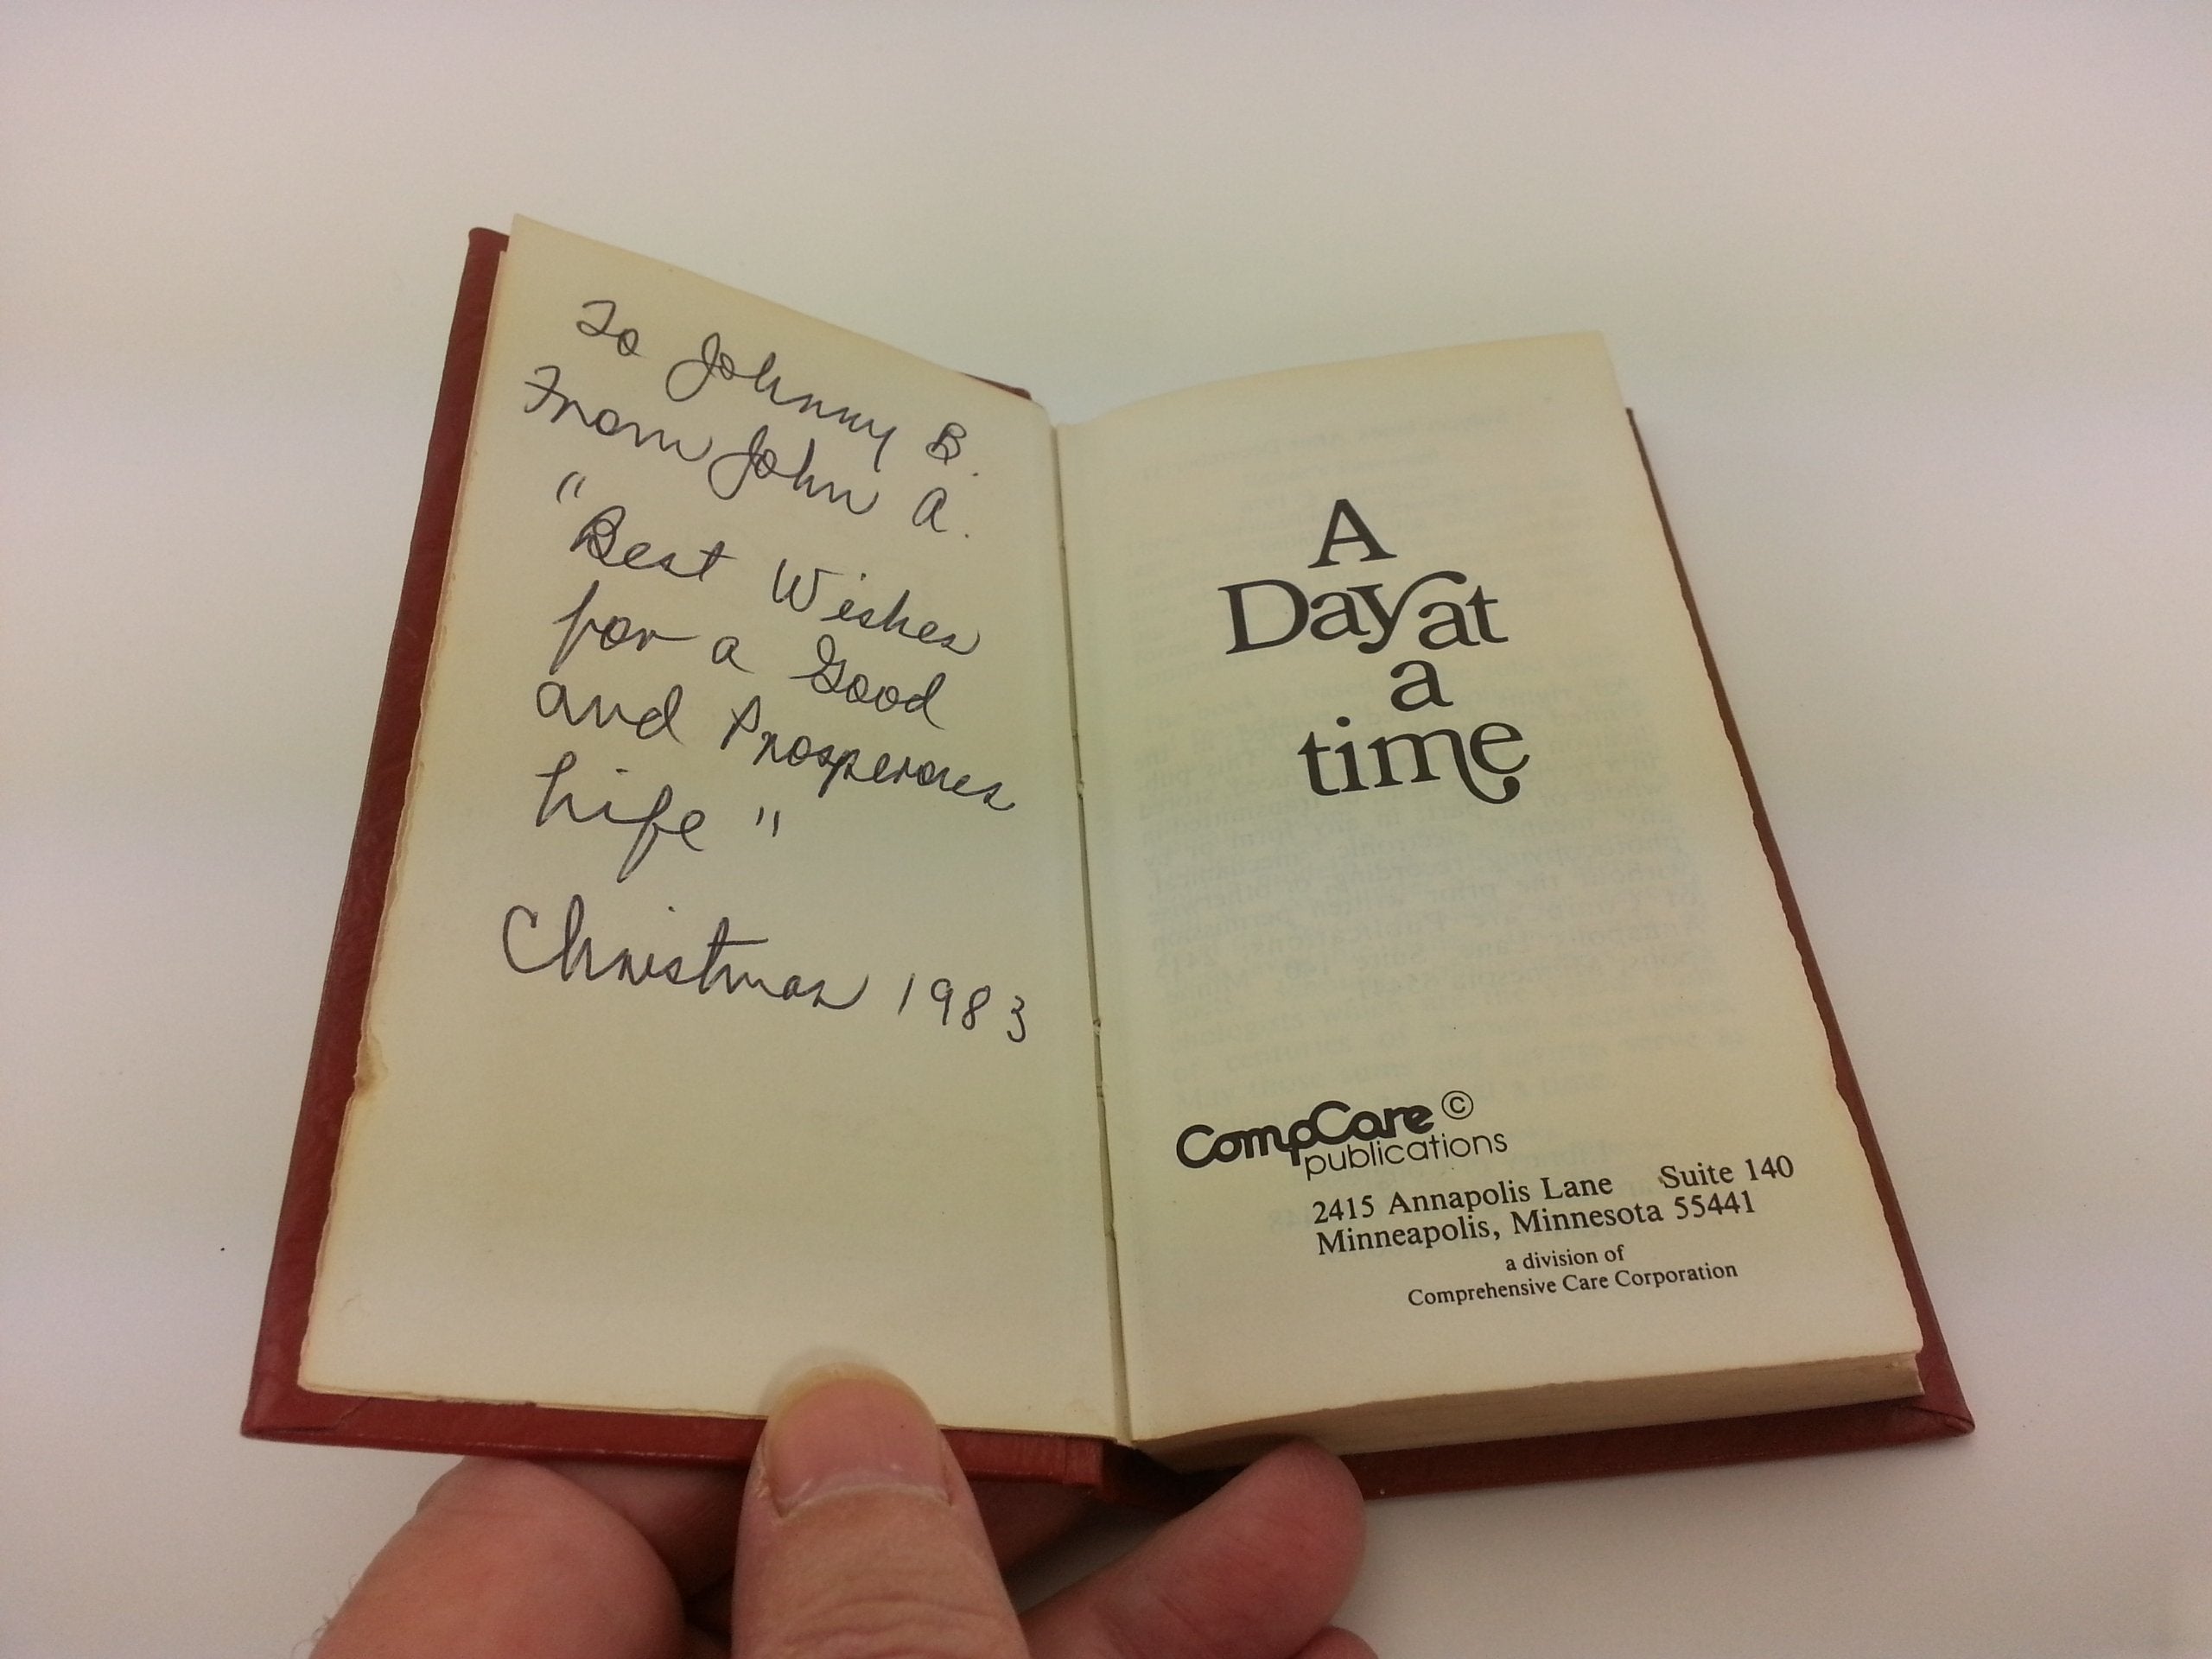 To Johnny B.
From John A.
"Best Wishes
for a Good
and Prosperous
Life"
Christmas 1983
A
Day at
a
time
CompCare ©
publications
2415 Annapolis Lane Suite 140
Minneapolis, Minnesota 55441
a division of
Comprehensive Care Corporation